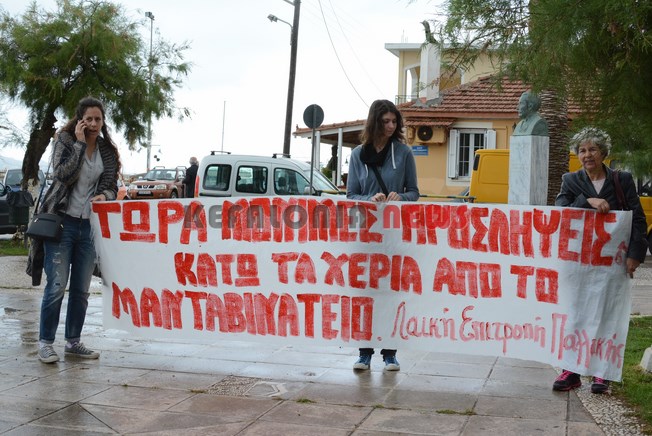 ΤΩΡΑ ΜΟΝΙΜΕΣ ΠΡΟΣΛΗΨΕΙΣ
ΚΑΤΩ ΤΑ ΧΕΡΙΑ ΑΠΟ ΤΟ
ΜΑΝΤΑΒΙΝΑΤΕΙΟ. Λαϊκή Επιτροπή Παλλικής